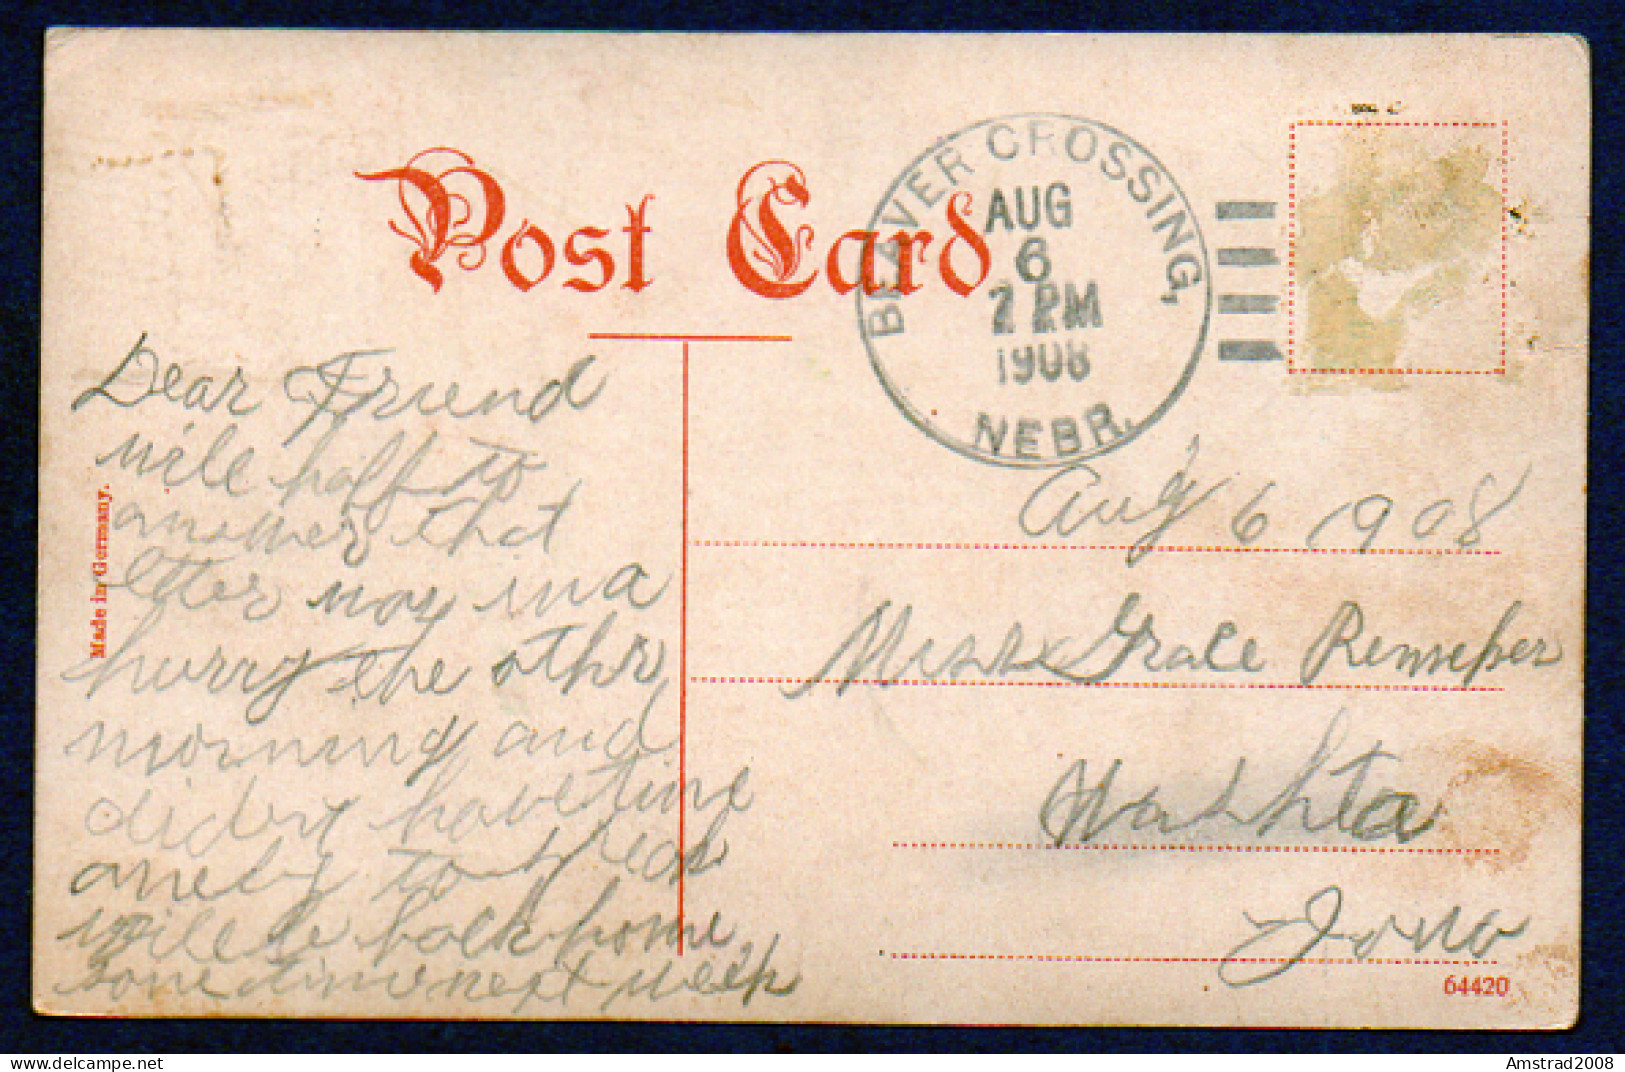 Post Card
BEAVER CROSSING,
AUG
6
2 PM
1908
NEBR.
Made in Germany.
Dear Friend
will haff to
answer that
letter was in a
hurry the other
morning and
dident have time
to
will be back home
some time next week
Aug 6 1908
Miss Grace
Washta
Iowa
64420
Amstrad2008